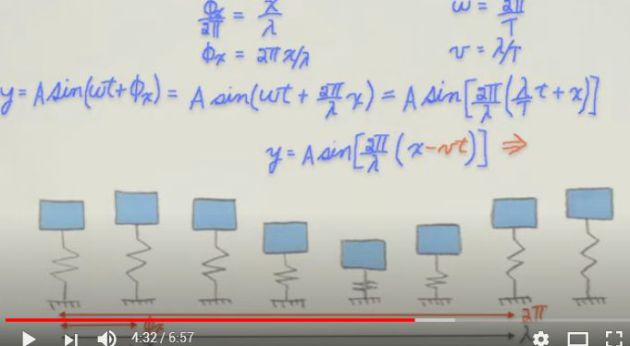 Φx/2π = x/λ    ω = 2π/T
Φx = 2πx/λ    v = λ/T
y = A sin(ωt + Φx) = A sin(ωt + 2π/λ x) = A sin[2π/λ (λ/T t + x)]
y = A sin[2π/λ (x - vt)] ⇒
2π
Φx
λ
4:32 / 6:57